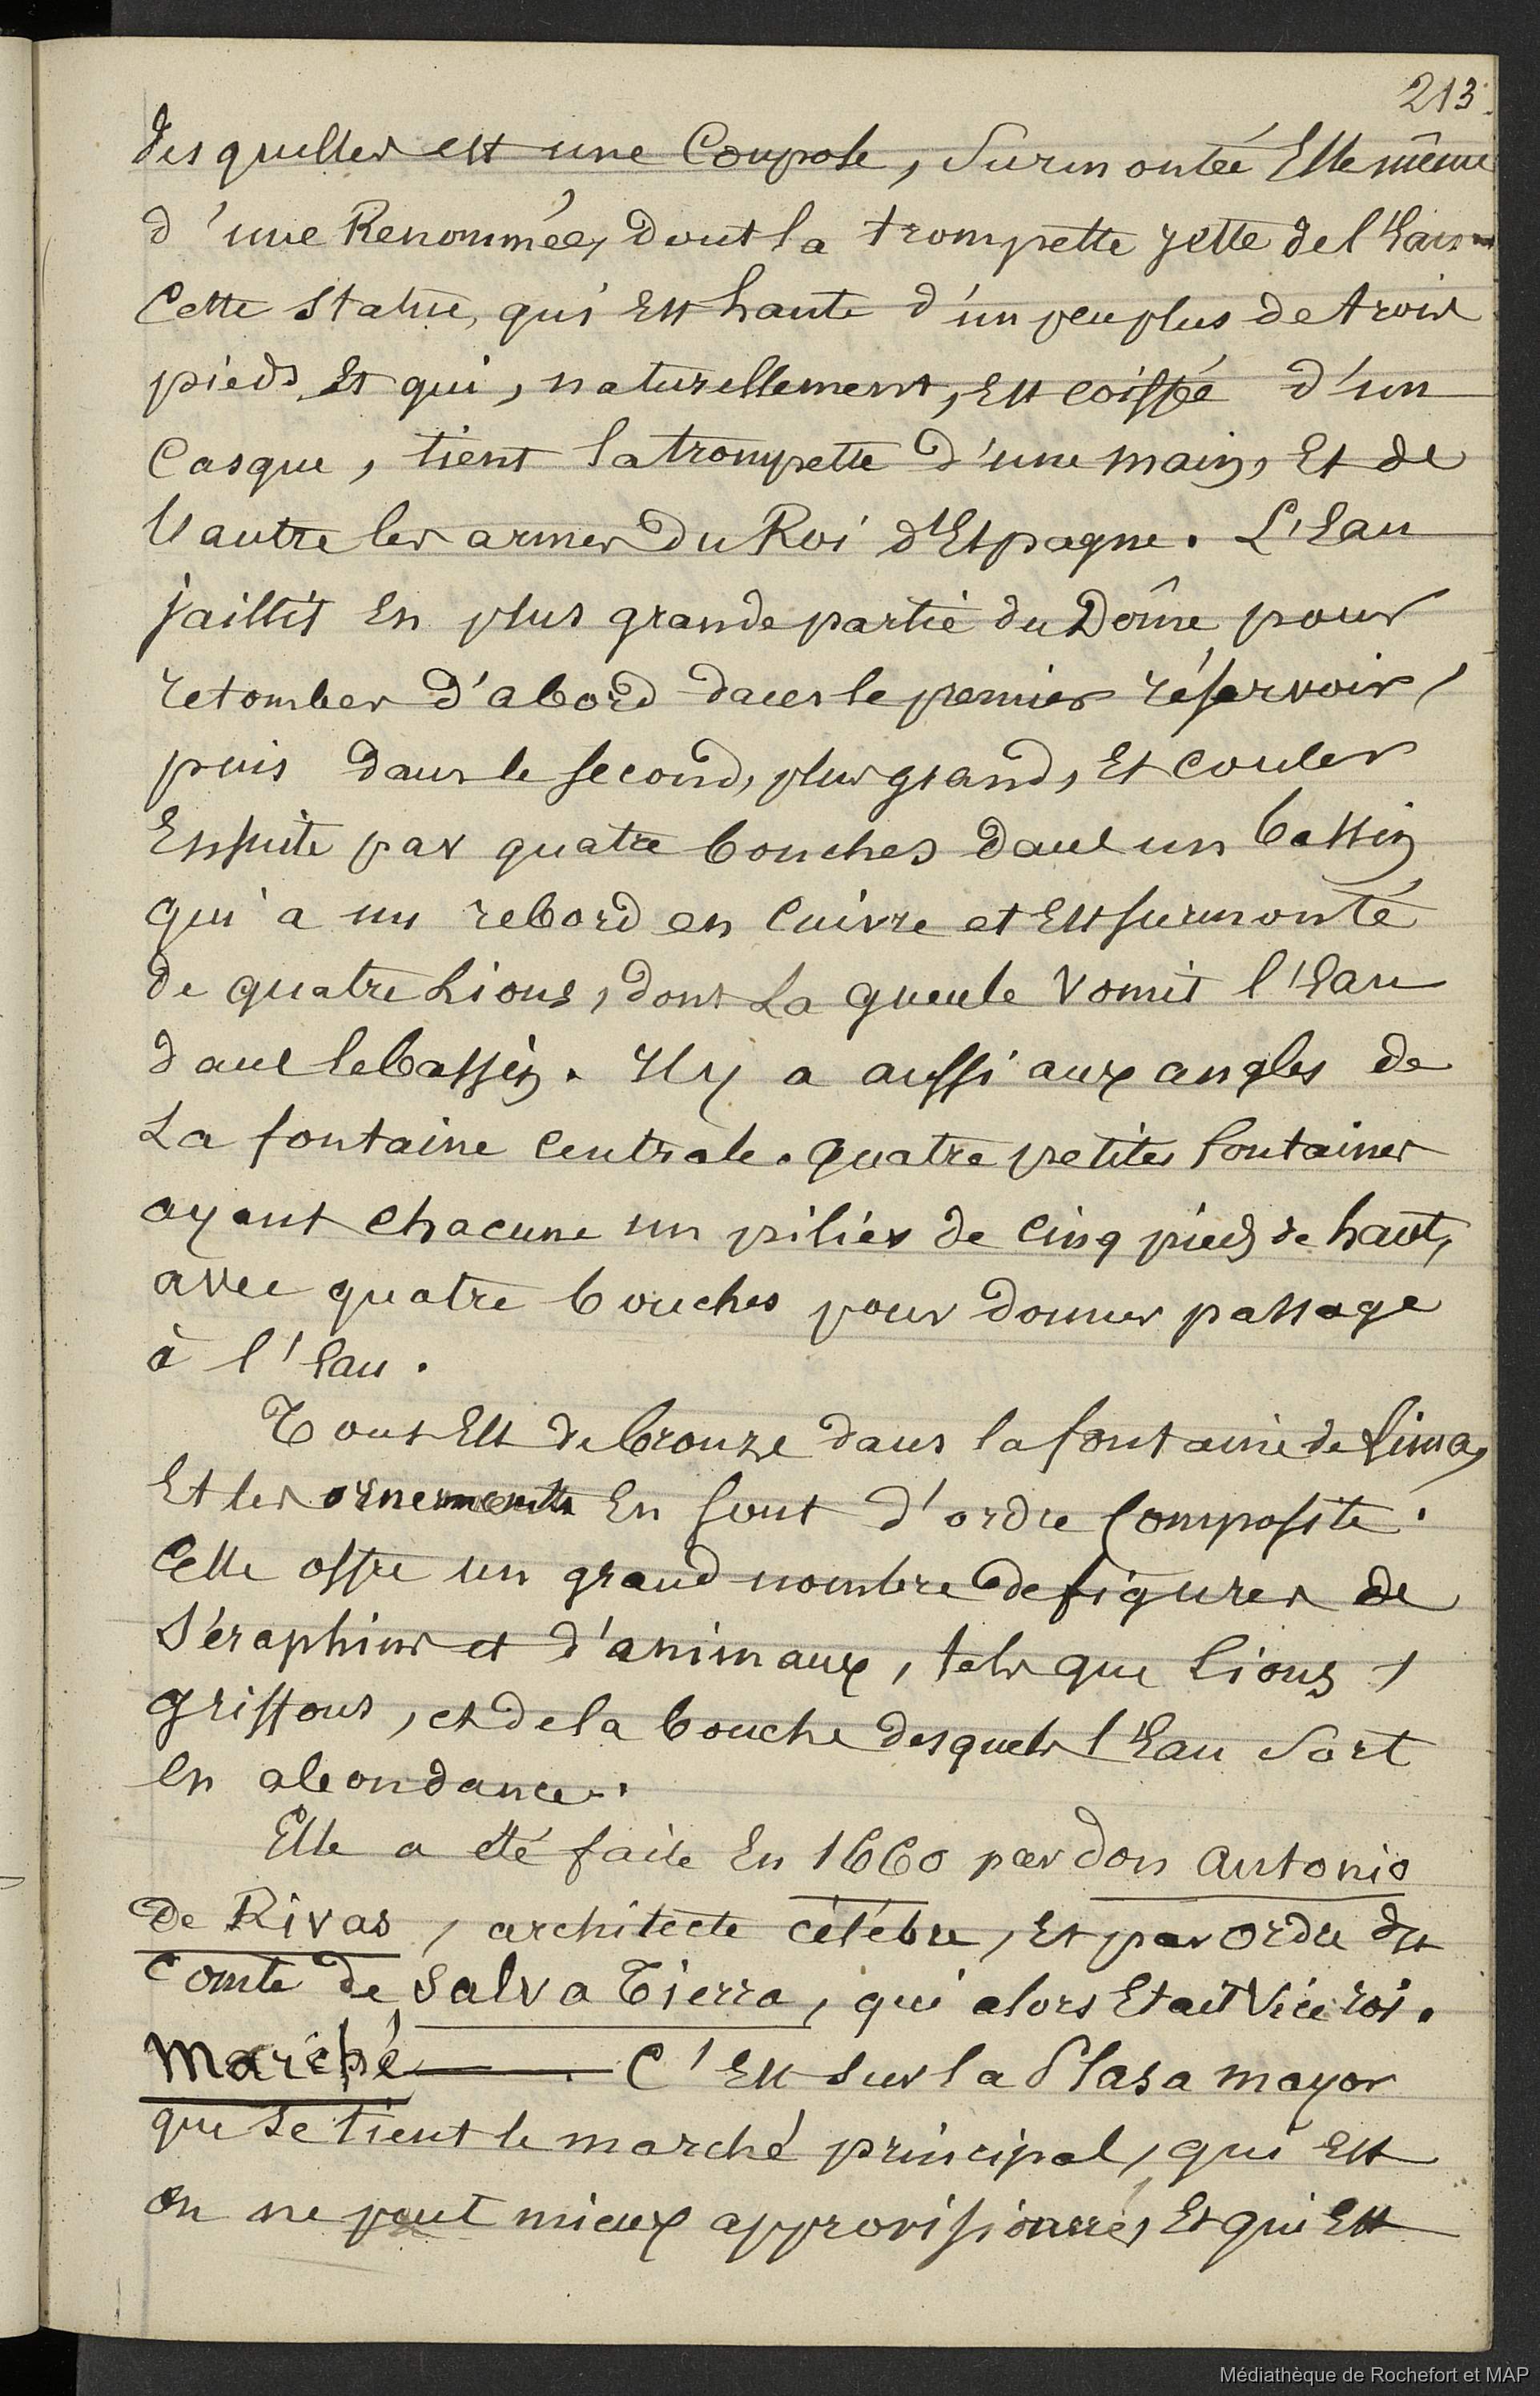 213.
desquelles est une Coupole, Surmontée Elle même
d'une Renommée, dont la trompette jette de l'Eau -
Cette statue, qui Est haute d'un peu plus de trois
pieds Et qui, naturellement, Est coiffée d'un
Casque, tient la trompette d'une main, Et de
l'autre les armes du Roi d'Espagne. L'Eau
jaillit En plus grande partie du Dôme pour
retomber d'abord dans le premier réservoir,
puis dans le second, plus grand, Et couler
Ensuite par quatre bouches dans un bassin
qui a un rebord en Cuivre et Est surmonté
de quatre Lions, dont La gueule Vomit l'Eau
dans le bassin. Il y a aussi aux angles de
La fontaine Centrale. quatre petites fontaines
ayant chacune un pilier de Cinq pieds de haut,
avec quatre bouches pour donner passage
à l'Eau.
Tout Est de bronze dans la fontaine de Lima,
Et les ornements En sont d'ordre Composite.
Elle offre un grand nombre de figures de
Séraphins et d'animaux, tels que Lions,
griffons, et de la bouche desquels l'Eau Sort
En abondance.
Elle a été faite En 1660 par don Antonio
de Rivas, architecte célèbre, Et par ordre du
Comte de Salva Tierra, qui alors Etait Vice roi.
Marché ——— C'Est sur la Plasa mayor
que se tient le marché principal, qui Est
on ne peut mieux approvisionné, Et qui Est
Médiathèque de Rochefort et MAP